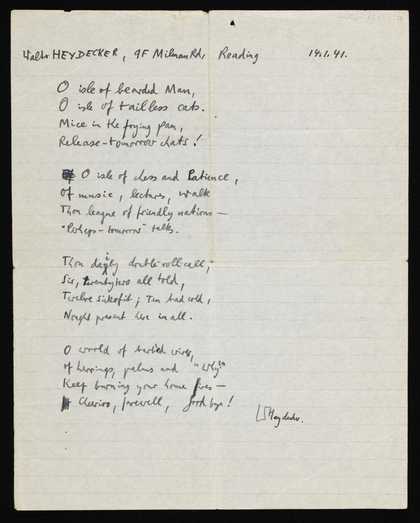 Walter HEYDECKER, 9F Milman Rd, Reading 14.1.41.
O isle of bearded Man,
O isle of tailless cats.
Mice in the frying pan,
Release-tomorrow chats!
O isle of chess and Patience,
Of music, lectures, walk
Thou league of friendly nations –
"Perhaps – tomorrow" talks.
Thou daily double rollcall,
Six, twenty two all told,
Twelve sick of it; Ten had cold,
Nought present here in all.
O world of barbed wire,
Of herrings, palms and "why"
Keep burning your home fires –
Cheerio, farewell, good bye!
WHeydecker.